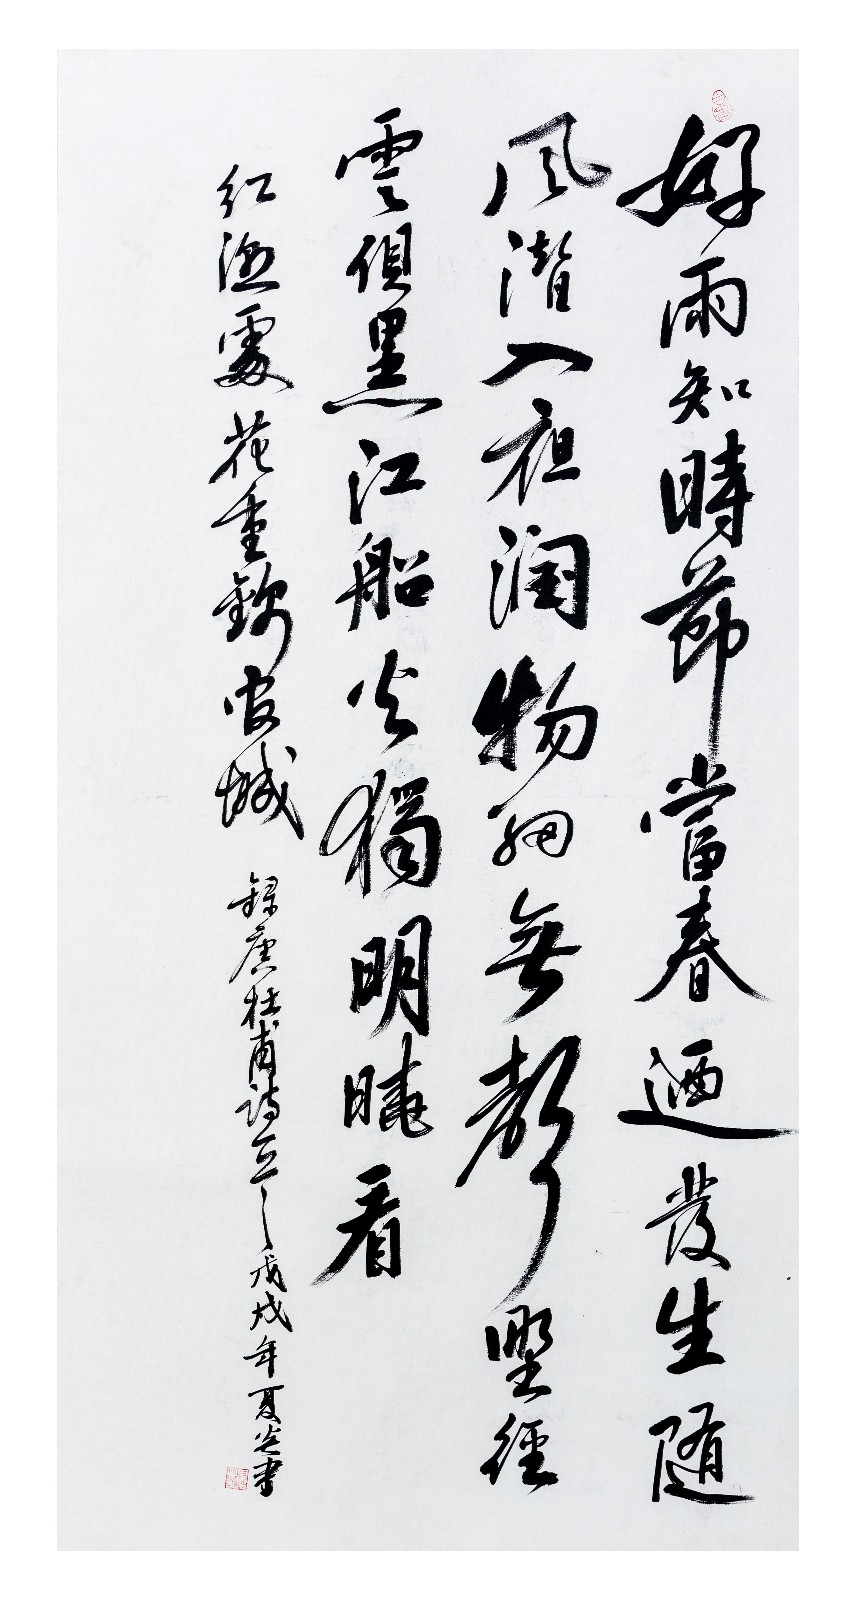 好雨知時節當春迺發生随
风潛入夜润物細無聲野徑
雲俱黑江船火獨明曉看
红濕處花重錦官城 錄唐杜甫詩 戊戌年夏